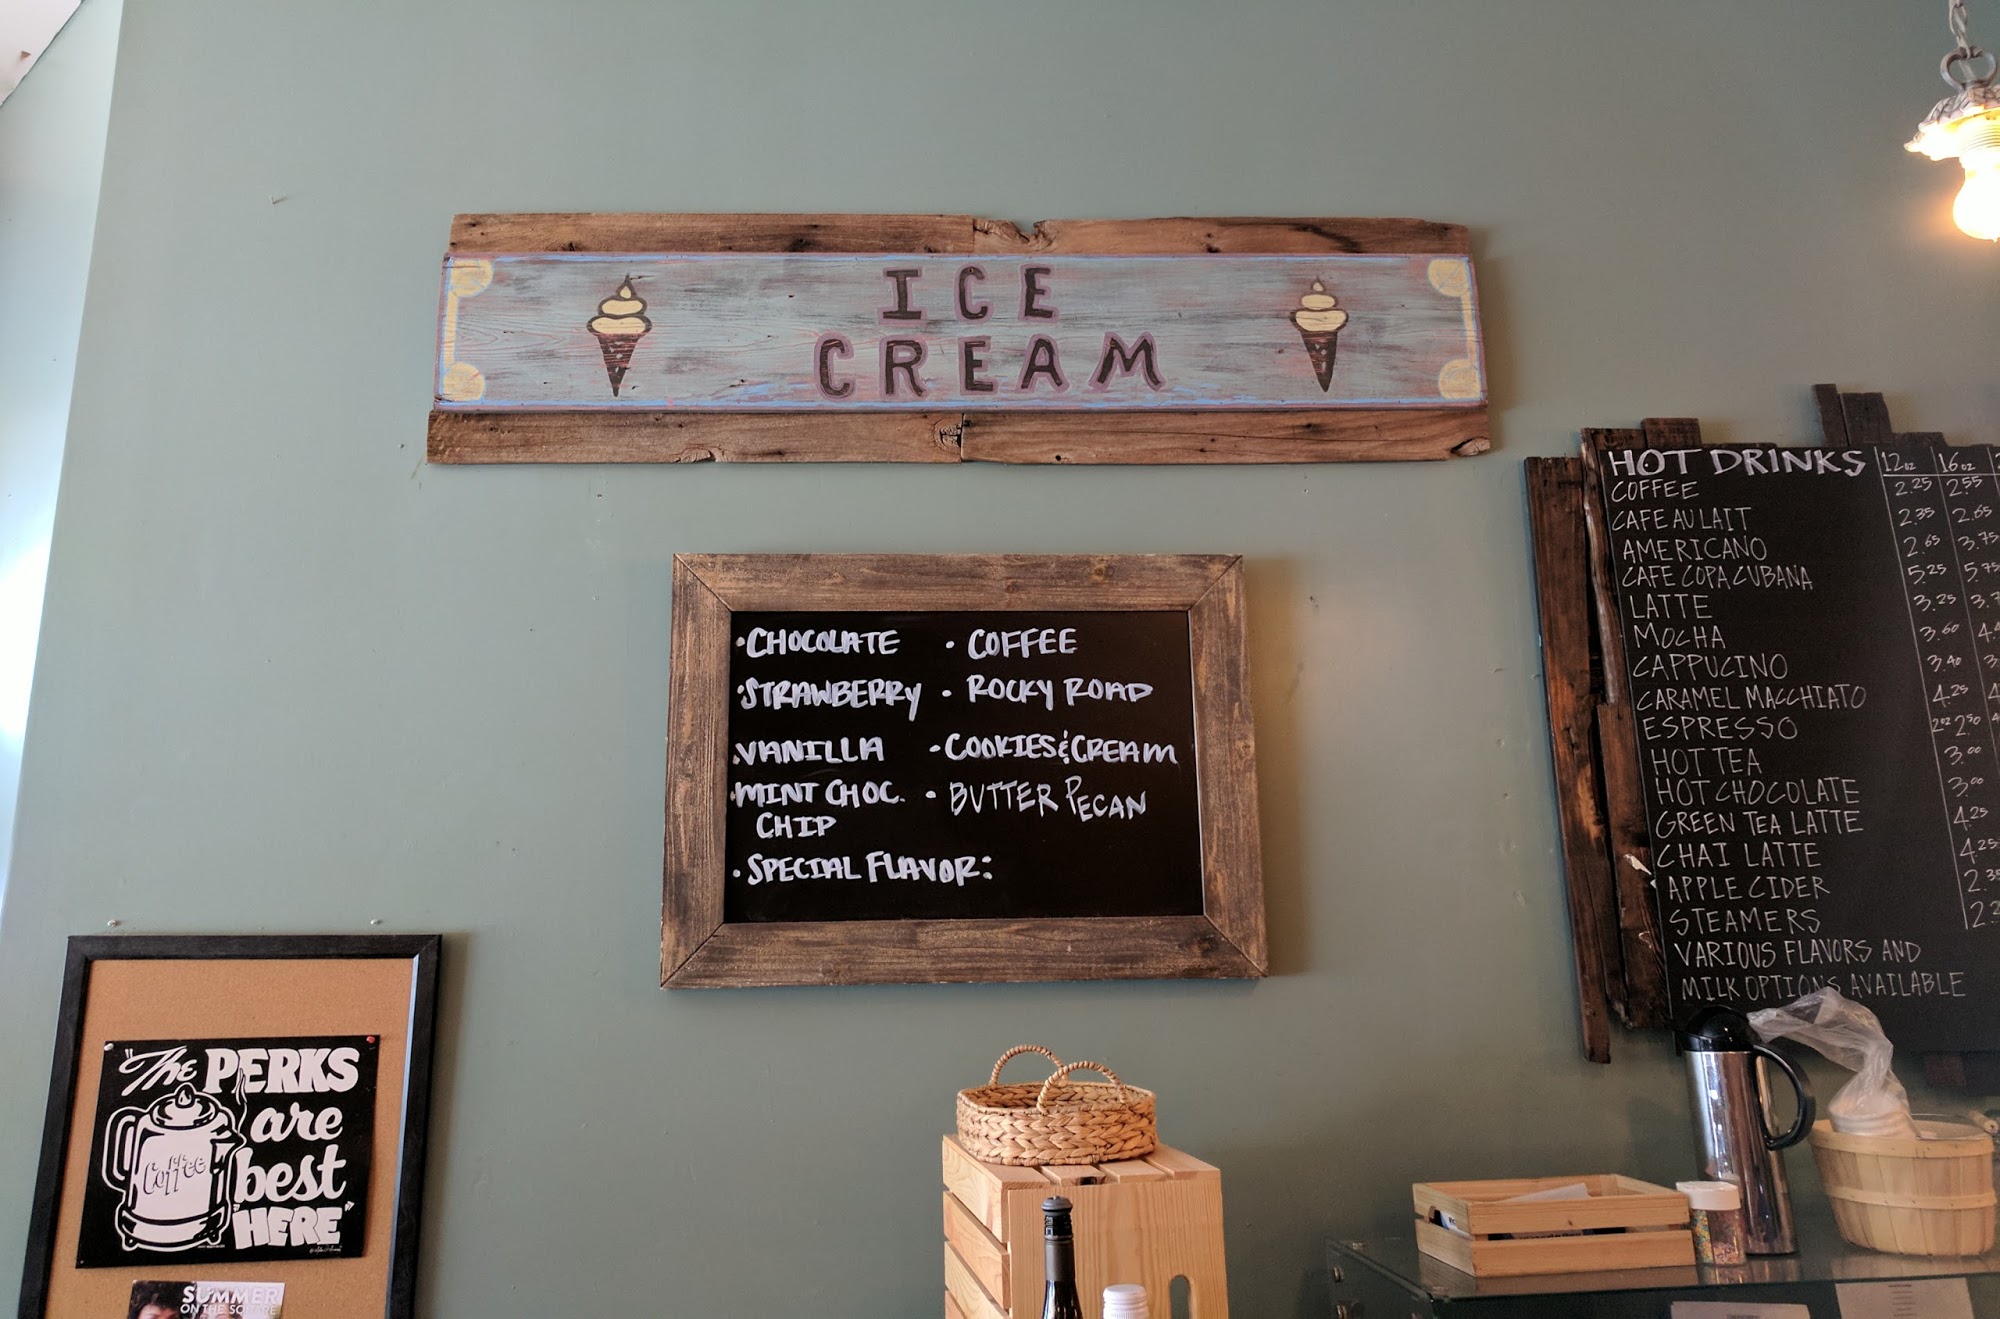 ICE
CREAM
•CHOCOLATE
•STRAWBERRY
•VANILLA
•MINT CHOC.
CHIP
• SPECIAL FLAVOR:
• COFFEE
• ROCKY ROAD
• COOKIES & CREAM
• BUTTER PECAN
HOT DRINKS 12oz 16oz
COFFEE 2.25 2.55
CAFE AU LAIT 2.35 2.65
AMERICANO 2.65 3.75
CAFE COPA CUBANA 5.25 5.75
LATTE 3.25
MOCHA 3.60
CAPPUCINO 3.40
CARAMEL MACCHIATO 4.25
ESPRESSO 2oz 2.50
HOT TEA 3.00
HOT CHOCOLATE 3.00
GREEN TEA LATTE 4.25
CHAI LATTE 4.25
APPLE CIDER
STEAMERS
VARIOUS FLAVORS AND
MILK OPTIONS AVAILABLE
"The PERKS
are
best
"HERE"
Coffee
SUMMER
ON THE SQUARE